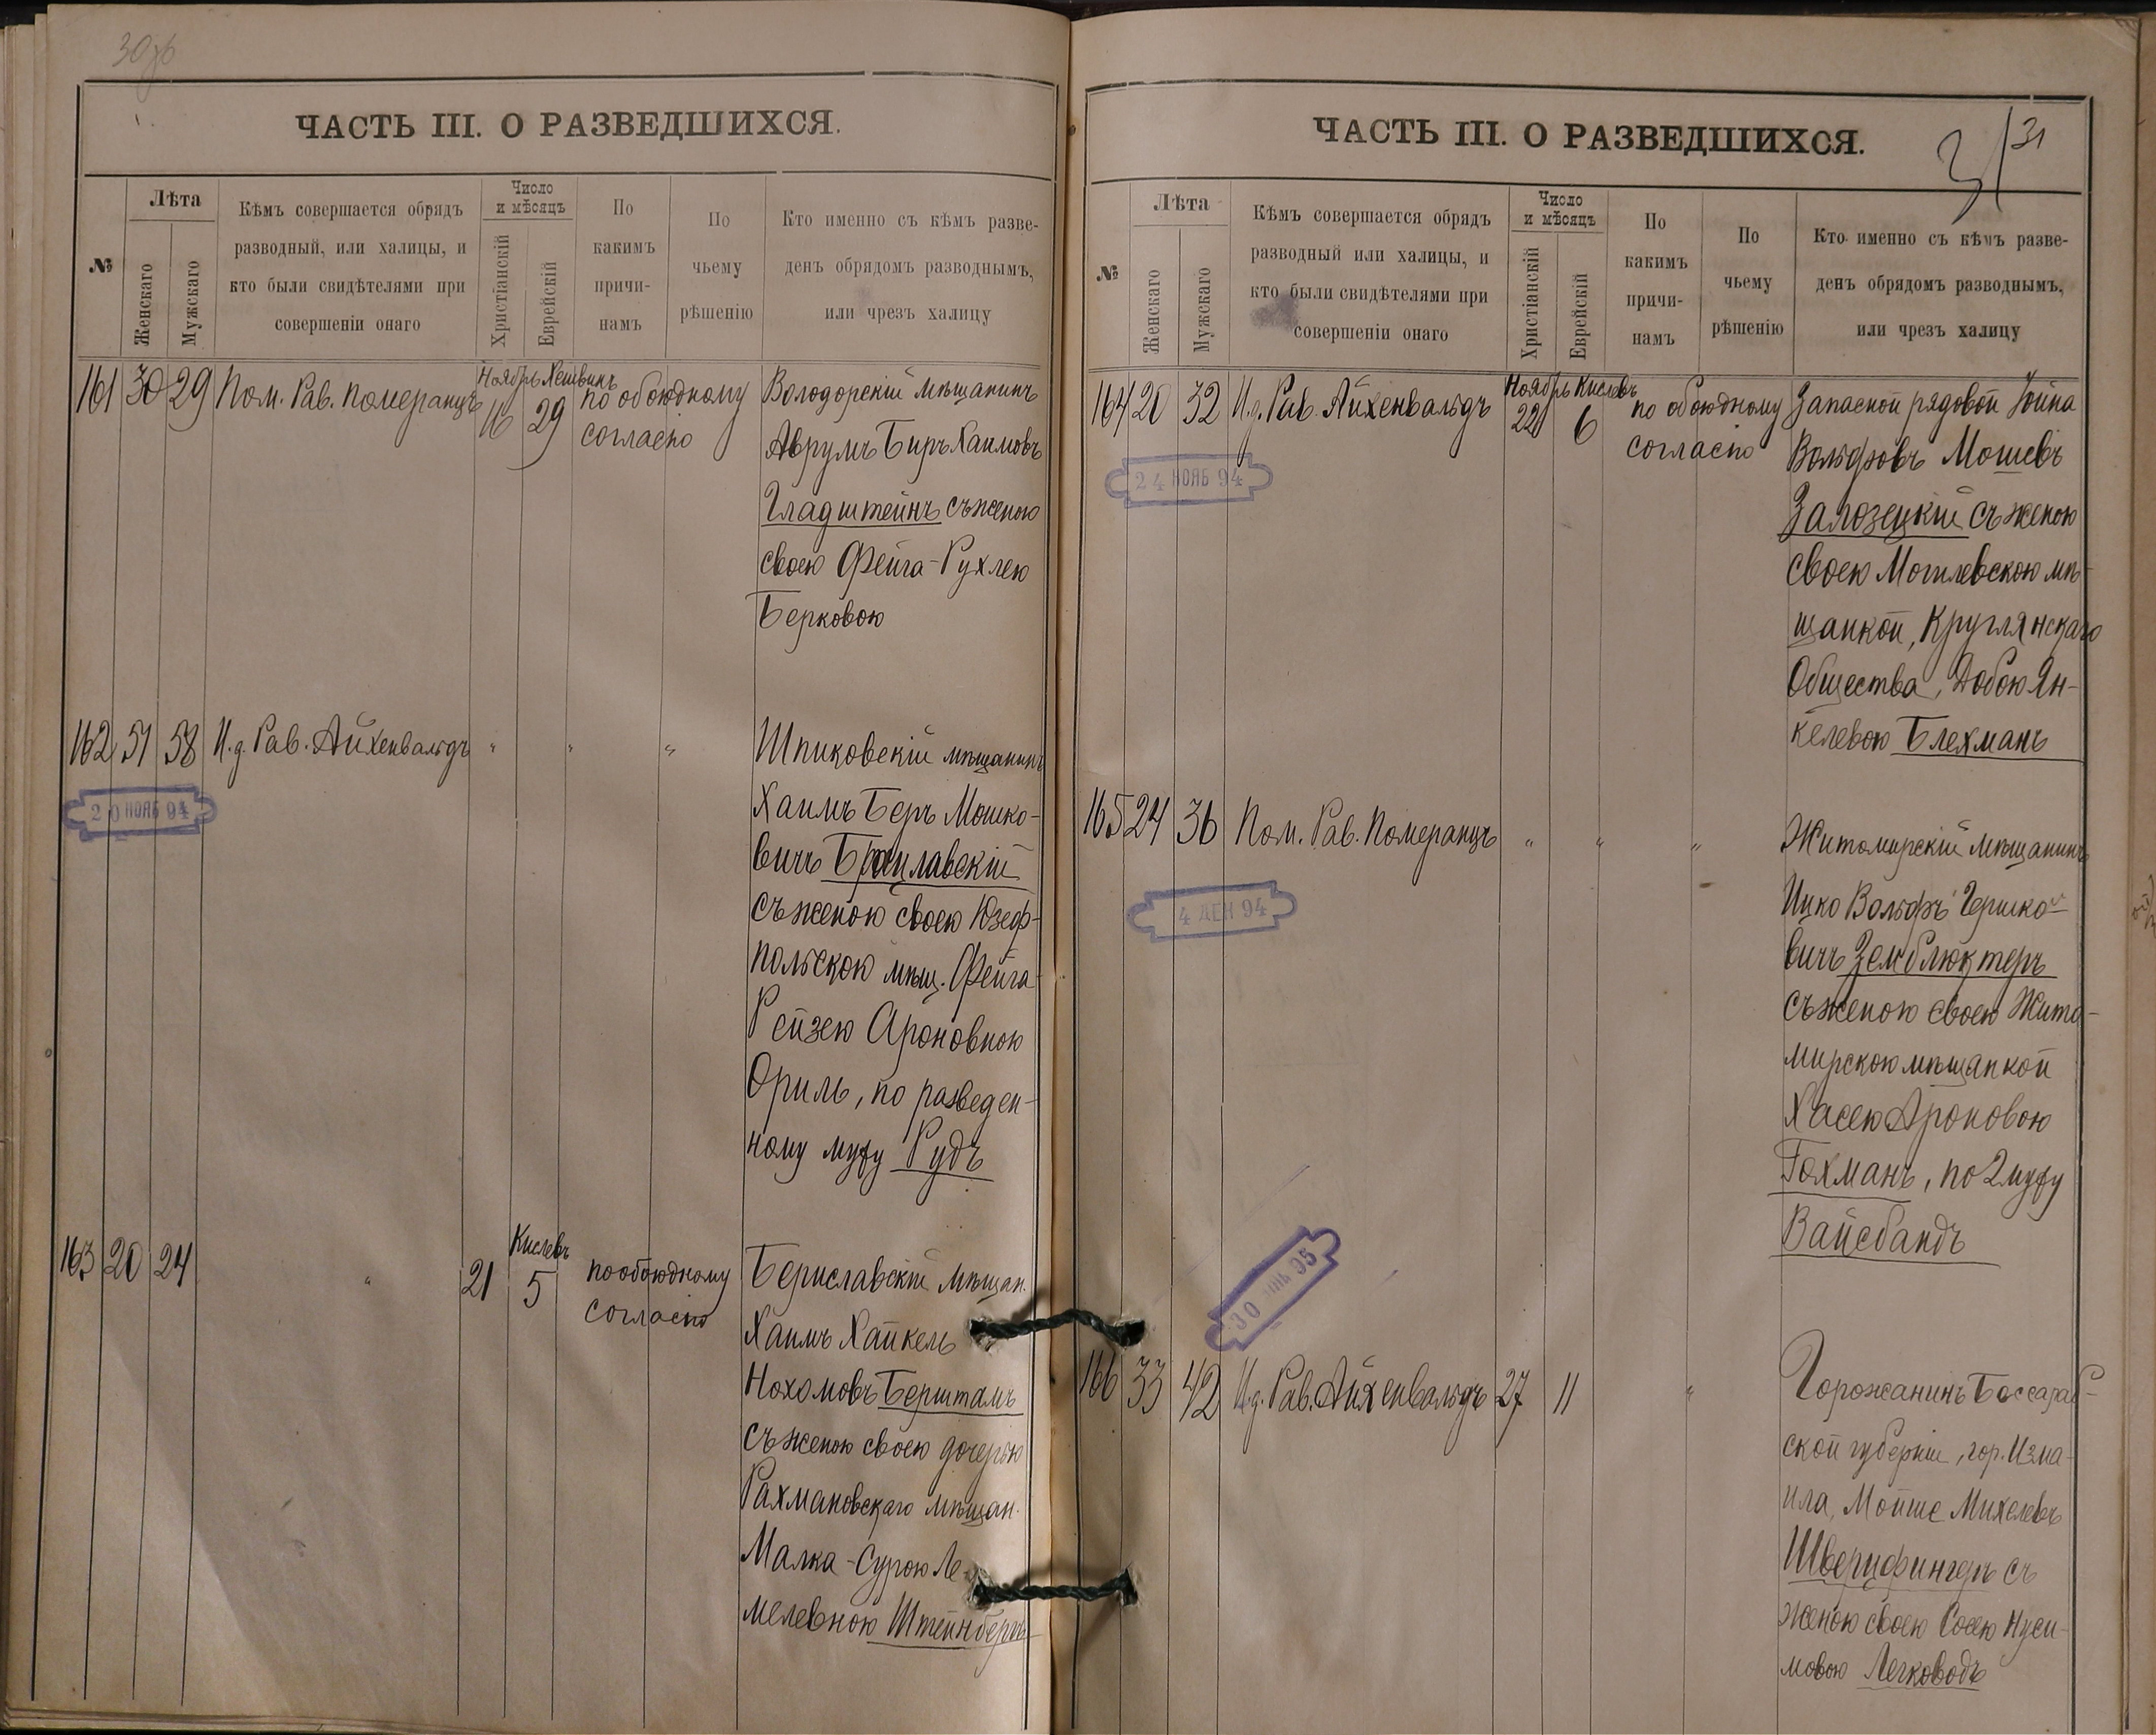 30об
ЧАСТЬ III. О РАЗВЕДШИХСЯ.
№
Лѣта
Женскаго
Мужскаго
Кѣмъ совершается обрядъ
разводный, или халицы, и
кто были свидѣтелями при
совершеніи онаго
Число
и мѣсяцъ
Христіанскій
Еврейскій
По
какимъ
причи-
намъ
По
чьему
рѣшенію
Кто именно съ кѣмъ разве-
денъ обрядомъ разводнымъ,
или чрезъ халицу
161 30 29 Пом. Рав. Померанцъ
Ноябрь Хешвинъ
16 29
по обоюдному
согласію
Володорскій мѣщанинъ
Аврумъ Биръ Хаимовъ
Гладштейнъ съ женою
своею Фейга-Рухлею
Берковою
162 51 58 И.д. Рав. Айхенвальдъ " " "
20 НОЯБ 94
Шпиковскій мѣщанинъ
Хаимъ Беръ Мошко-
вичъ Брацлавскій
съ женою своею Юзеф-
польскою мѣщ. Фейга
Рейзею Ароновною
Ориль, по разведен-
ному мужу Рудь
163 20 24 "
Кислевъ
21 5
по обоюдному
согласію
Бериславскій мѣщан.
Хаимъ Хайкель
Нохомовъ Берштамъ
съ женою своею дочерью
Рахмановскаго мѣщан.
Малка-Сурою Ле-
мелевною Штейнбергъ
31
ЧАСТЬ III. О РАЗВЕДШИХСЯ.
№
Лѣта
Женскаго
Мужскаго
Кѣмъ совершается обрядъ
разводный или халицы, и
кто были свидѣтелями при
совершеніи онаго
Число
и мѣсяцъ
Христіанскій
Еврейскій
По
какимъ
причи-
намъ
По
чьему
рѣшенію
Кто именно съ кѣмъ разве-
денъ обрядомъ разводнымъ,
или чрезъ халицу
164 20 32 И.д. Рав. Айхенвальдъ
24 НОЯБ 94
Ноябрь Кислевъ
22 6
по обоюдному
согласію
Запасной рядовой Іойна
Вольфовъ Мошевъ
Залозецкій съ женою
своею Могилевскою мѣ-
щанкой, Круглянскаго
Общества, Добою Ян-
келевою Блехманъ
165 24 36 Пом. Рав. Померанцъ " " "
4 ДЕК 94
Житомирскій мѣщанинъ
Ицко Вольфъ Гершко-
вичъ Земблюктеръ
съ женою своею Жито-
мирскою мѣщанкой
Хасею Ароновою
Гохманъ, по 2 мужу
Вайсбандъ
30 95
166 33 42 И.д. Рав. Айхенвальдъ 27 11 "
Горожанинъ Бессараб-
ской губерніи, гор. Изма-
ила, Мойше Михелевъ
Шверцфингеръ съ
женою своею Сосею Нуси-
мовою Легководъ